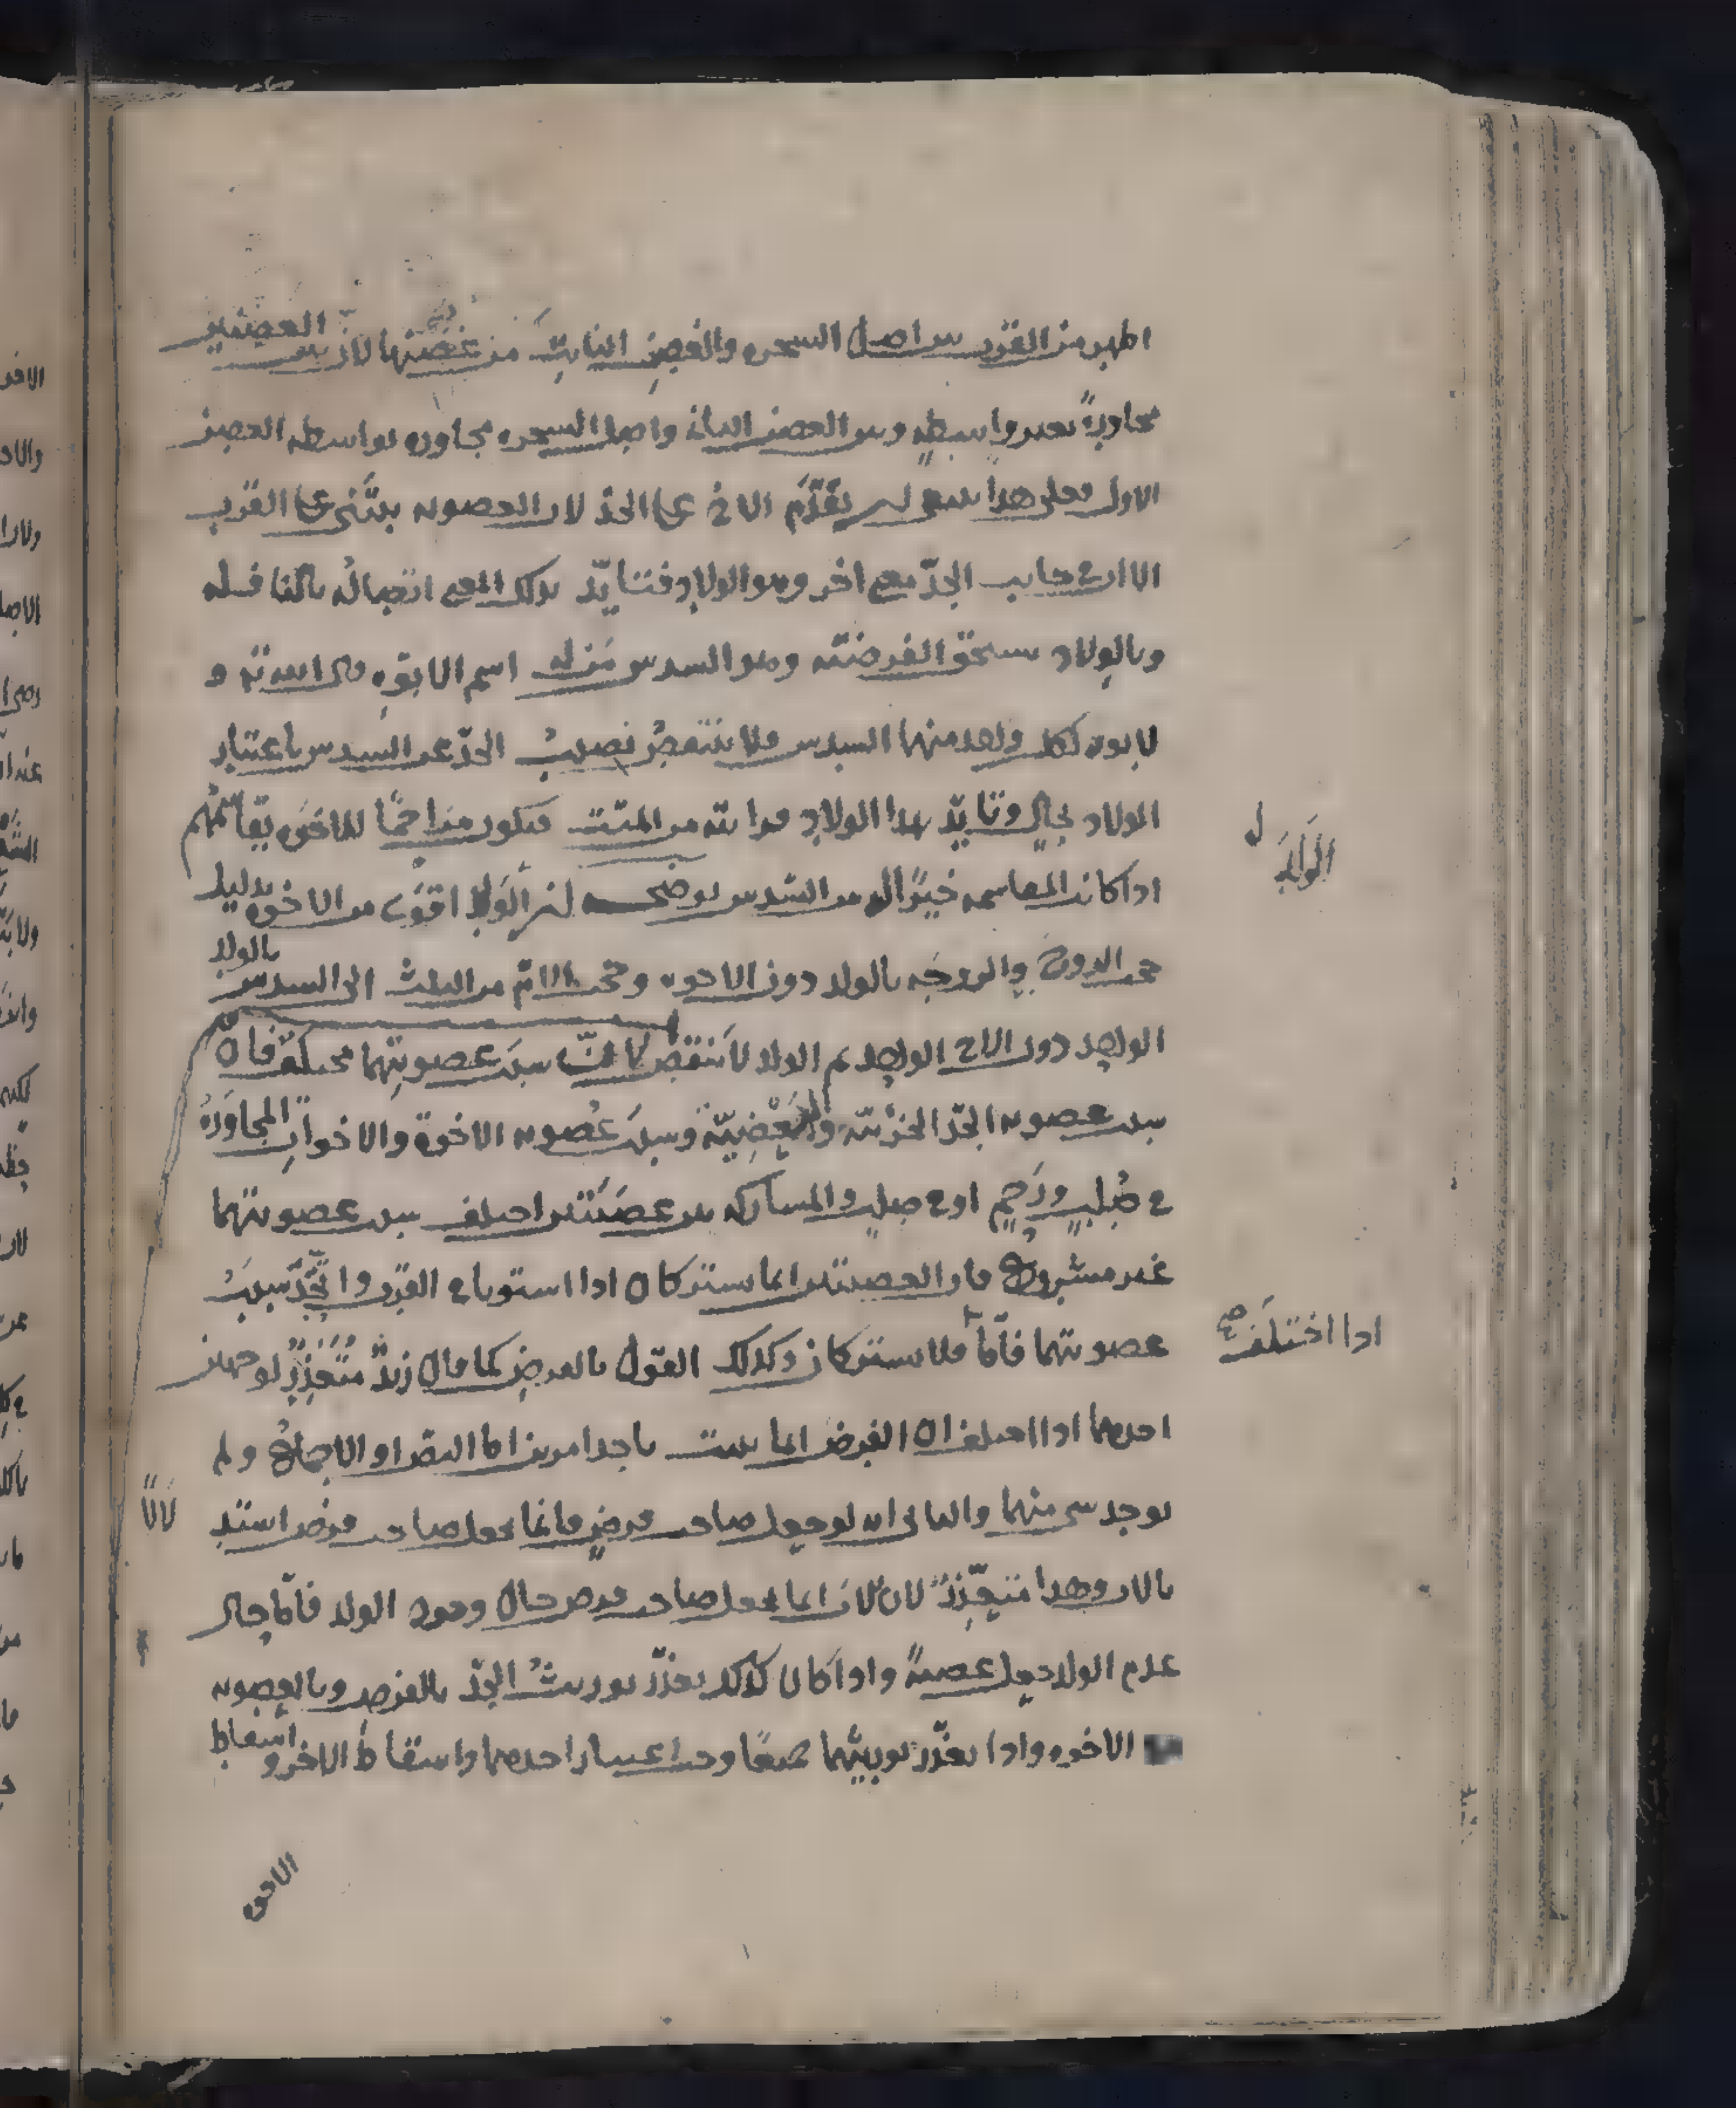 اظهر من القرب بين اصل الشجرة والغصن النابت من غصنها لان بين الغصنين
مجاورة بغير واسطة وبين الغصن الثاني واصل الشجرة مجاورة بواسطة الغصن
الاول فعلى هذا ينبغي ان يقدم الاخ على الجد لان العصوبة يبتنى على القرب
الا ان في جانب الجد معنى اخر وهو الولاد فتايد بذلك المعنى اتصاله بالنافلة
وبالولاد يستحق الفرضية وهو السدس منزله اسم الابوة قال الله تع و
لابويه لكل واحد منهما السدس فلا ينتقص نصيب الجد عن السدس باعتبار
الولاد بحال وتايد بهذا الولاد قرابته من الميت فيكون مزاحما للاخوة يقاسمهم
اذا كانت المقاسمة خيرا له من السدس يوضحه ان الولد اقوى من الاخوة بدليل
حجب الزوج والزوجة بالولد دون الاخوة وحجب الام من الثلث الى السدس بالولد
الواحد دون الاخ الواحد ثم الولد لا ينقص لان سبب عصوبتهما مختلفان
سبب عصوبة الجد الجزئية والبعضية وسبب عصوبة الاخوة والاخوات المجاورة
في صلب ورحم او في صلب والمشاركة بين عصبتين اختلف سبب عصوبتهما
غير مشروع فان العصبتين انما يشتركان اذا استويا في القرب واتحد سبب
عصوبتهما فاما فلا يشتركان وكذلك القول بالفرض كما قال زيد متعذر لوجهين
احدهما اذا اختلف ان الفرض انما يثبت باحد امرين اما النص او الاجماع ولم
يوجد شي منهما والثاني انه لو جعل صاحب فرض فانما يجعل صاحب فرض استد
بالاب وهذا متعذر لان الاب انما يجعل صاحب فرض حال وجود الولد فاما حال
عدم الولد جعل عصبة واذا كان كذلك تعذر توريث الجد بالفرض وبالعصوبة
الاخوة واذا تعذر توريثهما جميعا وجب اعتبار احدهما واسقاط الاخر واسقاط
الولد
اذا اختلف صح
لانا
الاخوة